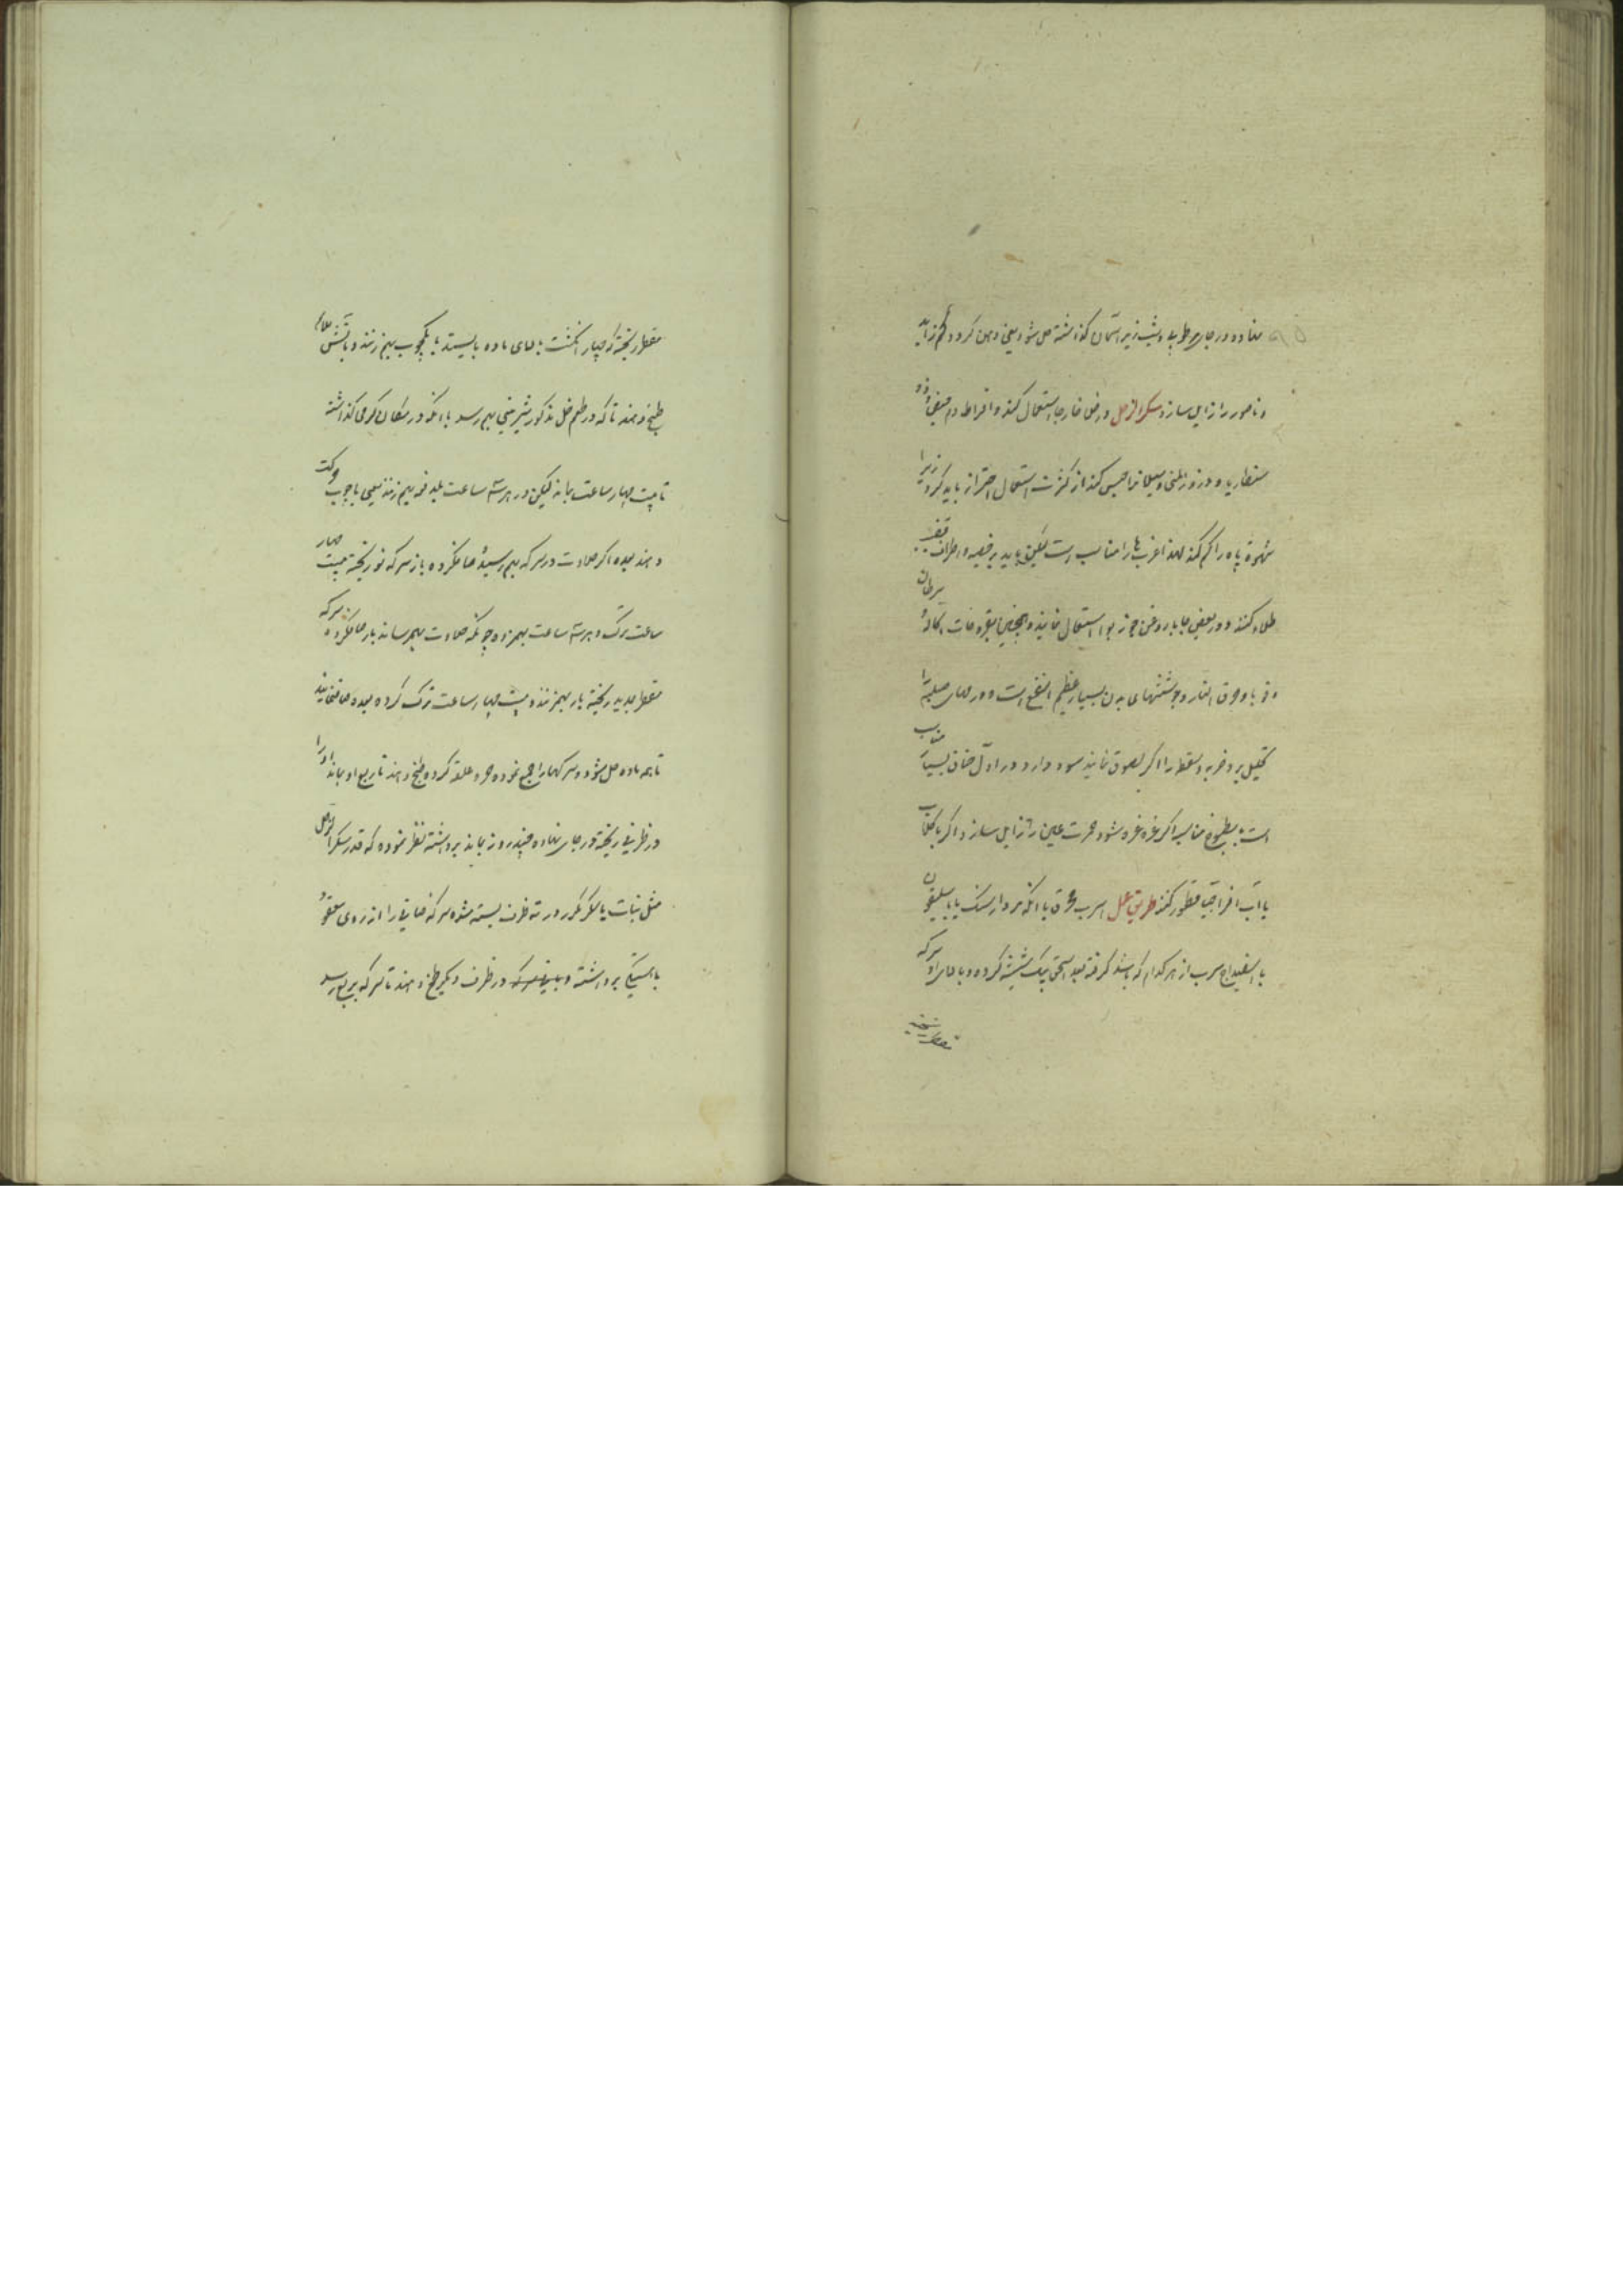 نهاده در جای مرطوب یا شب زیر آسمان گذاشته حل شود یعنی دهن گردد زخم
و ناصور را زایل سازد سکر الزحل داخل خارجا استعمال کنند و افراط دم حیض
سنطاریا و دوزنطی را حبس کند از کثرت استعمال احتراز باید کرد زیرا
شهوة باه را کم کند لهذا عزب ها را مناسب است لیکن باید بر خصیه و اطراف قضیب
طلاء کنند و در بعض جا با روغن جوز بوا استعمال نمایند و همچنین بقروحات اکاله و سرطان
و قوبا و حرق النار و جوششهای بدن بسیار عظیم النفع است و ورمهای صلبه را
تحلیل برد ضربه و سقطه را اگر لصوق نمایند سود دارد و در اول خناق بسیار مناسب
است بمطبوخ مناسبه اگر غرغره شود حمرت عین را زایل سازد اگر با گلاب
یا آب افراجیا قطور کنند طریق عمل اسرب محرق یا آنکه مردارسنگ یا با سلیقون
یا اسفیداج سرب از هر کدام که باشد گرفته بعد السحق بیک شیشه کرده و بالای او سرکه
مقطر ریخته که چهار انگشت بالای ماده بایستد با یکچوب بهم زنند و بآتش ملایم
طبخ دهند تا که در طعم خل مذکور شیرینی بهم رسد یا آنکه در مکان گرمی گذاشته
تا بیست چهار ساعت بماند لیکن در هر سه ساعت یکدفعه بهم زنند یعنی با چوب حرکت
دهند بعده اگر حلاوت در سرکه بهم رسید صاف کرده باز سرکه نو ریخته بیست چهار
ساعت ترک و هر سه ساعت بهم زند و چونکه حلاوت بهم رساند باز صاف کرده سرکه
مقطر جدید ریخته باز بهم زنند و بیست چهار ساعت ترک کرده بعده صاف نمایند
تا همه ماده حل شود و سرکها را جمع نموده جر و علقه کرده طبخ دهند تا ربع او بماند او را
در ظرفی ریخته در جای نهاده چند روز بماند برداشته نظر نموده که قدر سکر الزحل
مثل نبات یا شکر مکرر در ته ظرف بسته شده سرکه صافی را از روی معقود
باهستگی برداشته و باقی سرکه در ظرف دیگر طبخ دهند تا سرکه بربع رسد